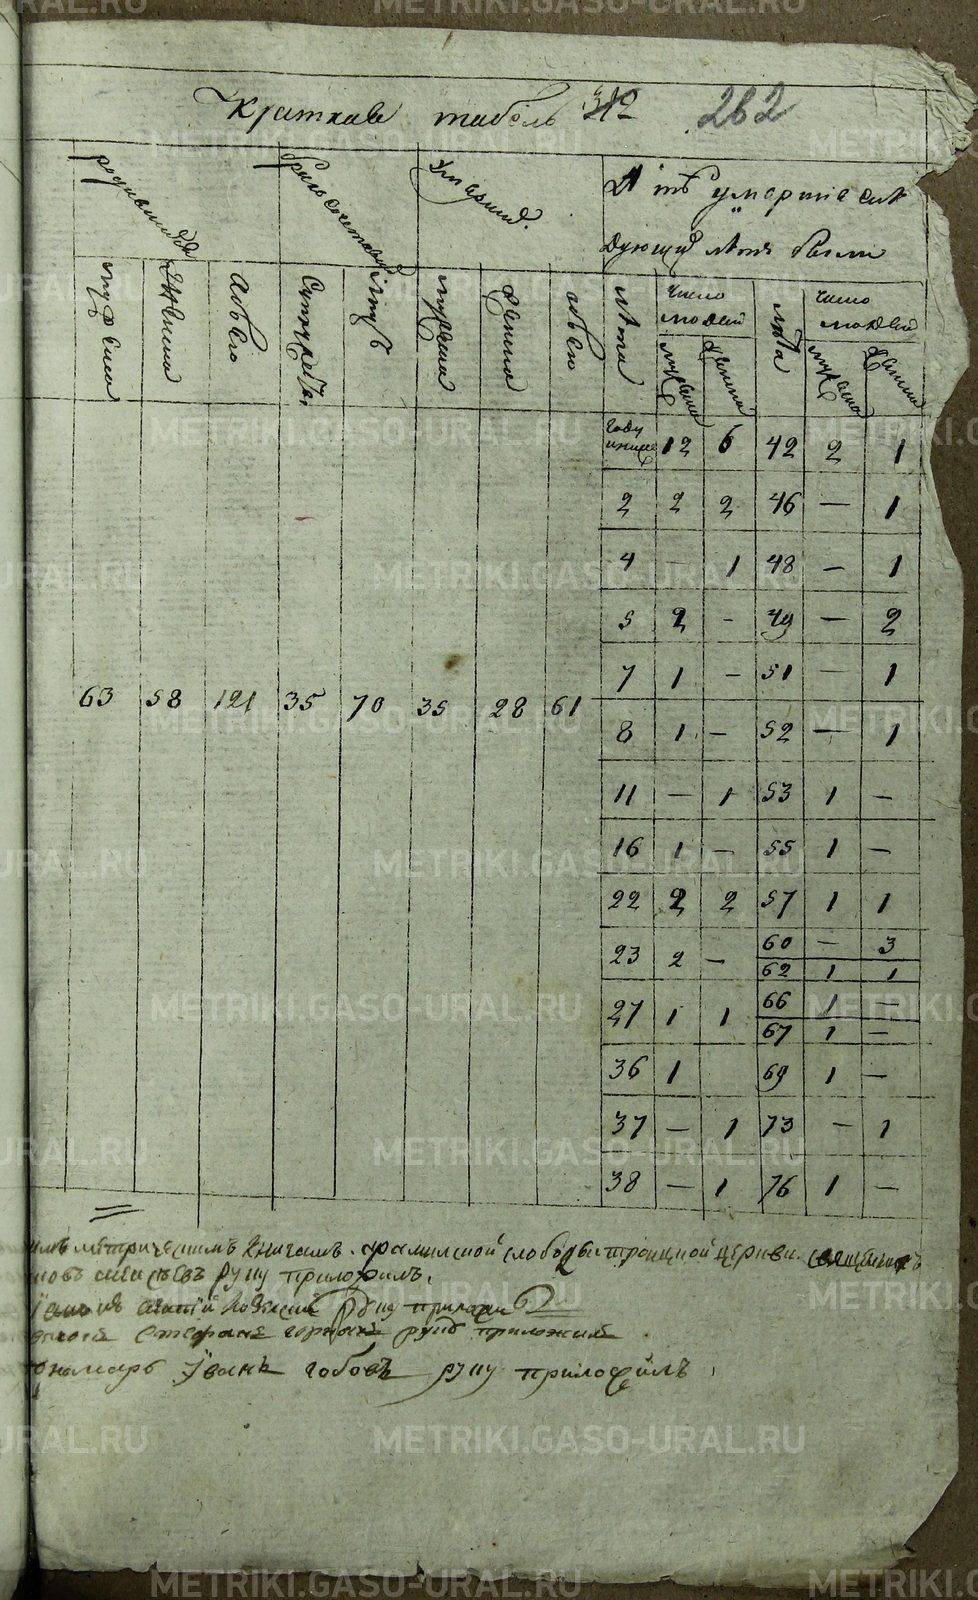 Краткая табель 312 262
родившихся
бракосочетавшихся
умерших
А тѣ умершіе слѣ
дующихъ лѣтъ были
мужеска
женска
обоего
супружествъ
мужеска
женска
обоего
лѣта
число людей
мужеска
женска
лѣта
число людей
мужеска
женска
году и ниже 12 6 42 2 1
2 2 2 46 — 1
4 — 1 48 — 1
5 2 — 49 — 2
7 1 — 51 — 1
63 58 121 35 70 35 28 61
8 1 — 52 — 1
11 — 1 53 1 —
16 1 — 55 1 —
22 2 2 57 1 1
23 2 — 60 — 3
62 1 1
27 1 1 66 1 —
67 1 —
36 1 69 1 —
37 — 1 73 — 1
38 — 1 76 1 —
метрическимъ книгамъ арамильской слободы троицкой церкви священникъ
руку приложилъ.
руку приложи
руку приложилъ
Иванъ гобовъ руку приложилъ
METRIKI.GASO-URAL.RU